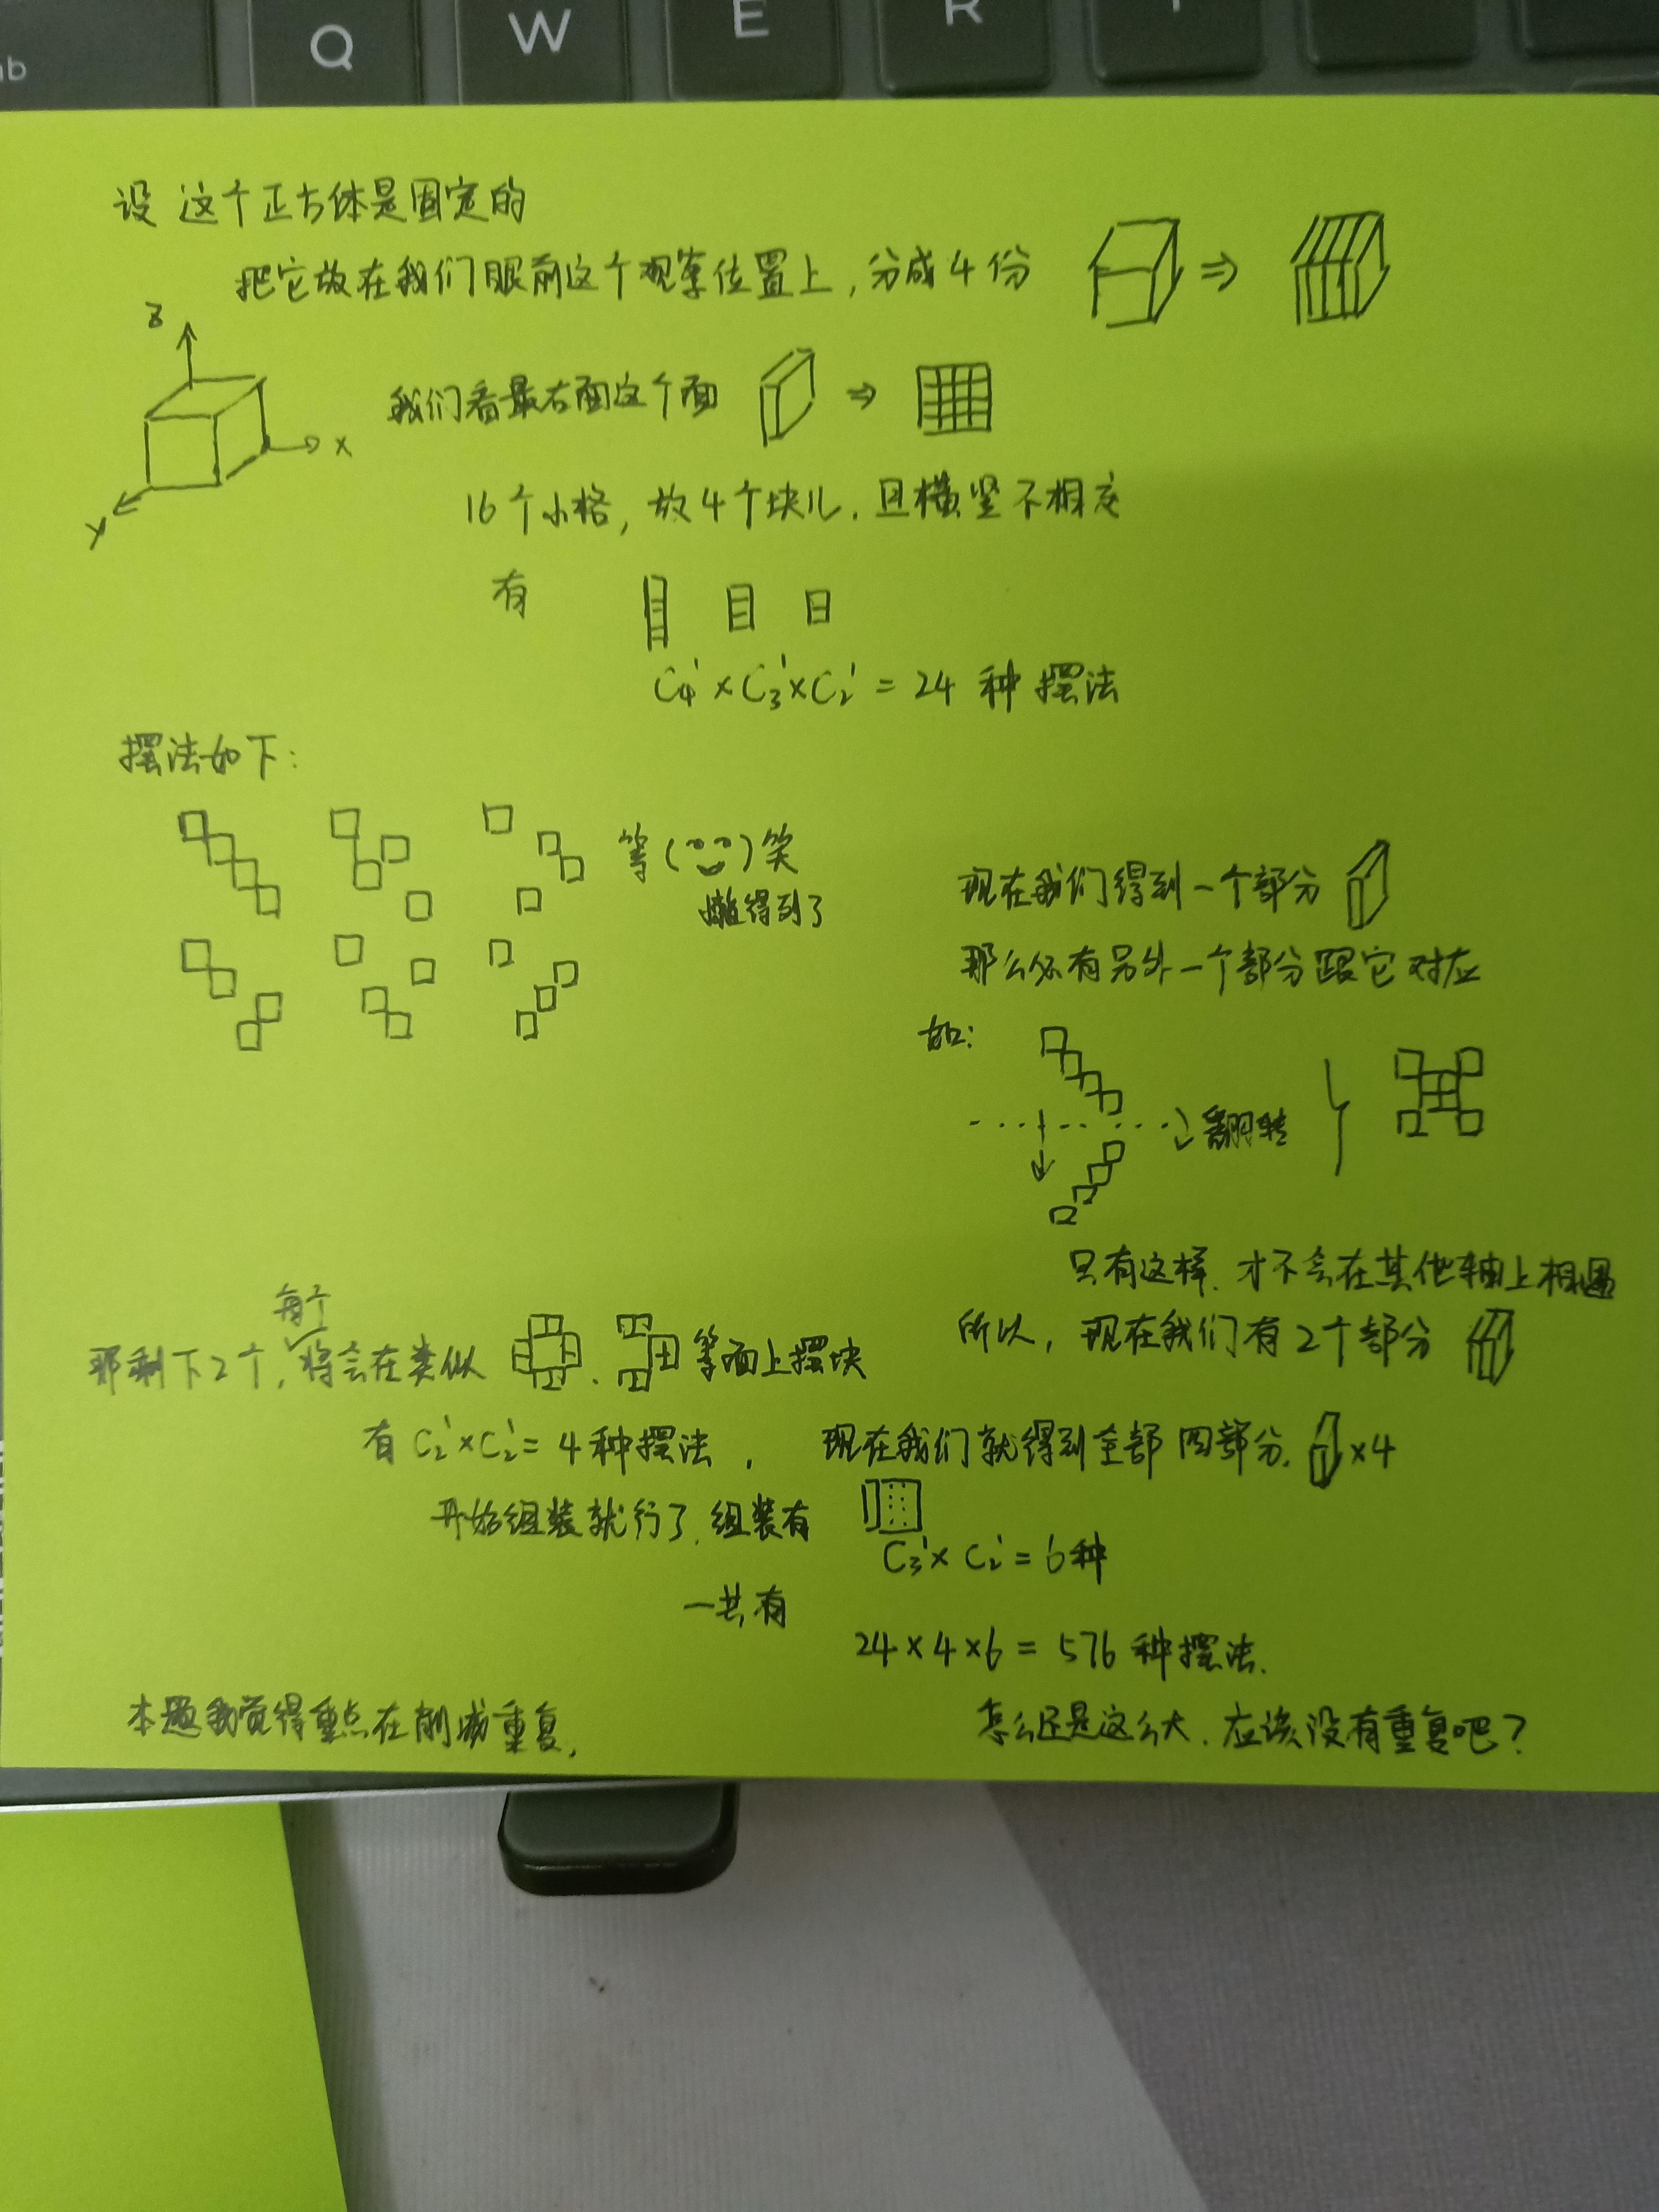 Q W E R
设 这个正方体是固定的
把它放在我们眼前这个观察位置上，分成4份
Z
X
Y
我们看最右面这个面
16个小格，放4个块儿，且横竖不相交
有
C₄¹×C₃¹×C₂¹=24 种 摆法
摆法如下：
等( )笑
懒得列了
现在我们得到一个部分
那么必有另外一个部分跟它对应
如：
翻转
只有这样，才不会在其他轴上相遇
所以，现在我们有2个部分
每个
那剩下2个，将会在类似 、 等面上摆块
有 C₂¹×C₂¹=4种摆法， 现在我们就得到全部四部分. ×4
开始组装就行了，组装有
C₃¹×C₂¹=6种
一共有
24×4×6=576种摆法.
本题我觉得重点在削减重复，
怎么还是这么大，应该没有重复吧？